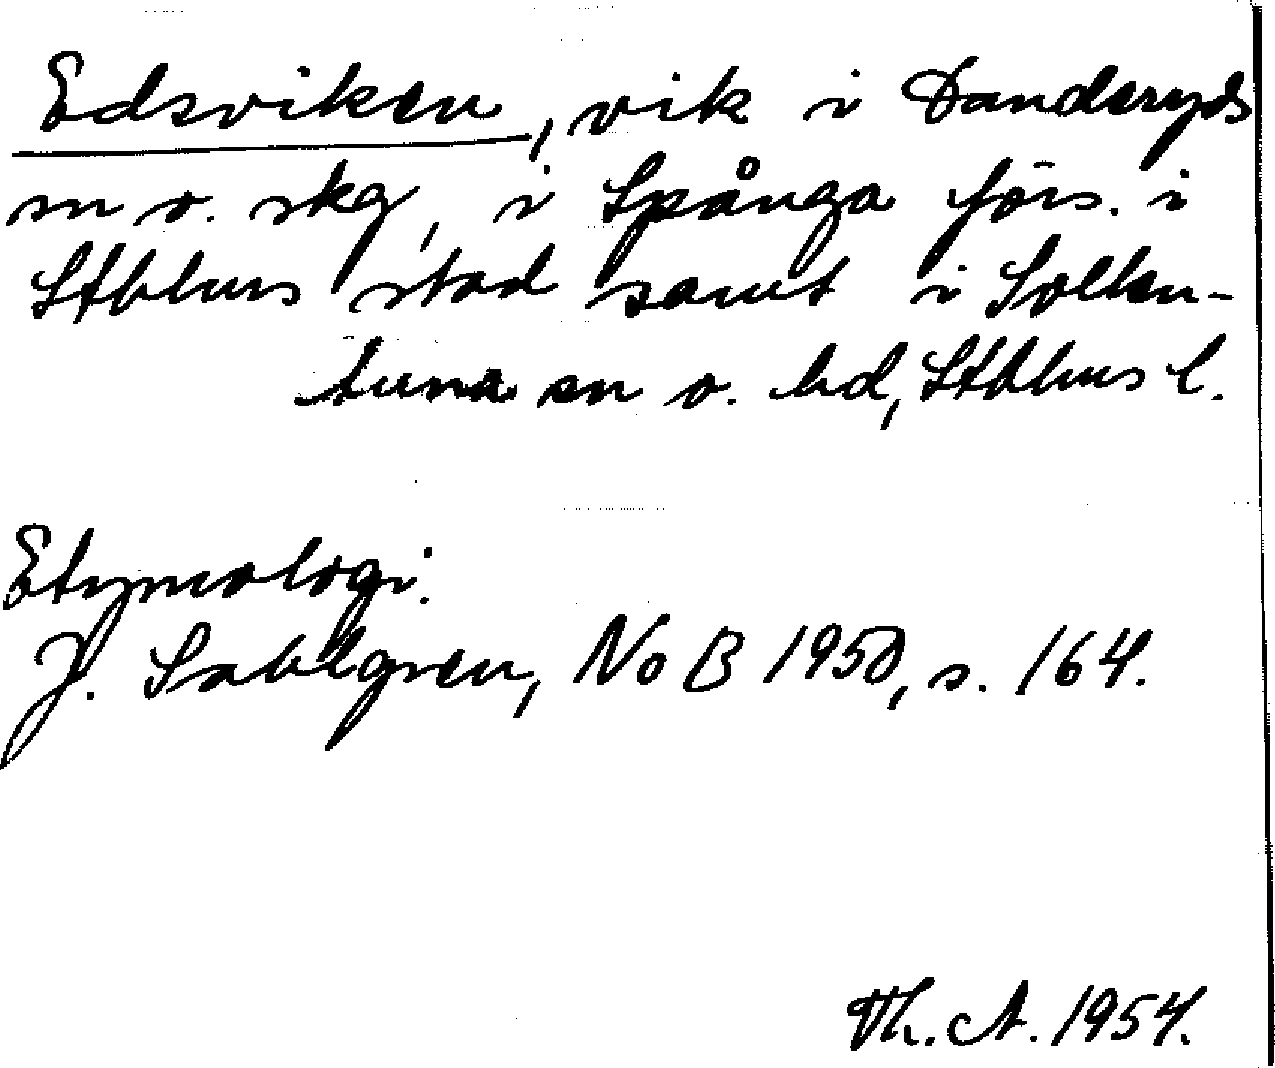 Edsviken, vik i Danderyds
sn o. skg, i Spånga förs. i
Sthlms stad samt i Sollen-
tuna sn o. hd, Sthlms l.
Etymologi:
J. Sahlgren, NoB 1950, s. 164.
Th. A. 1954.